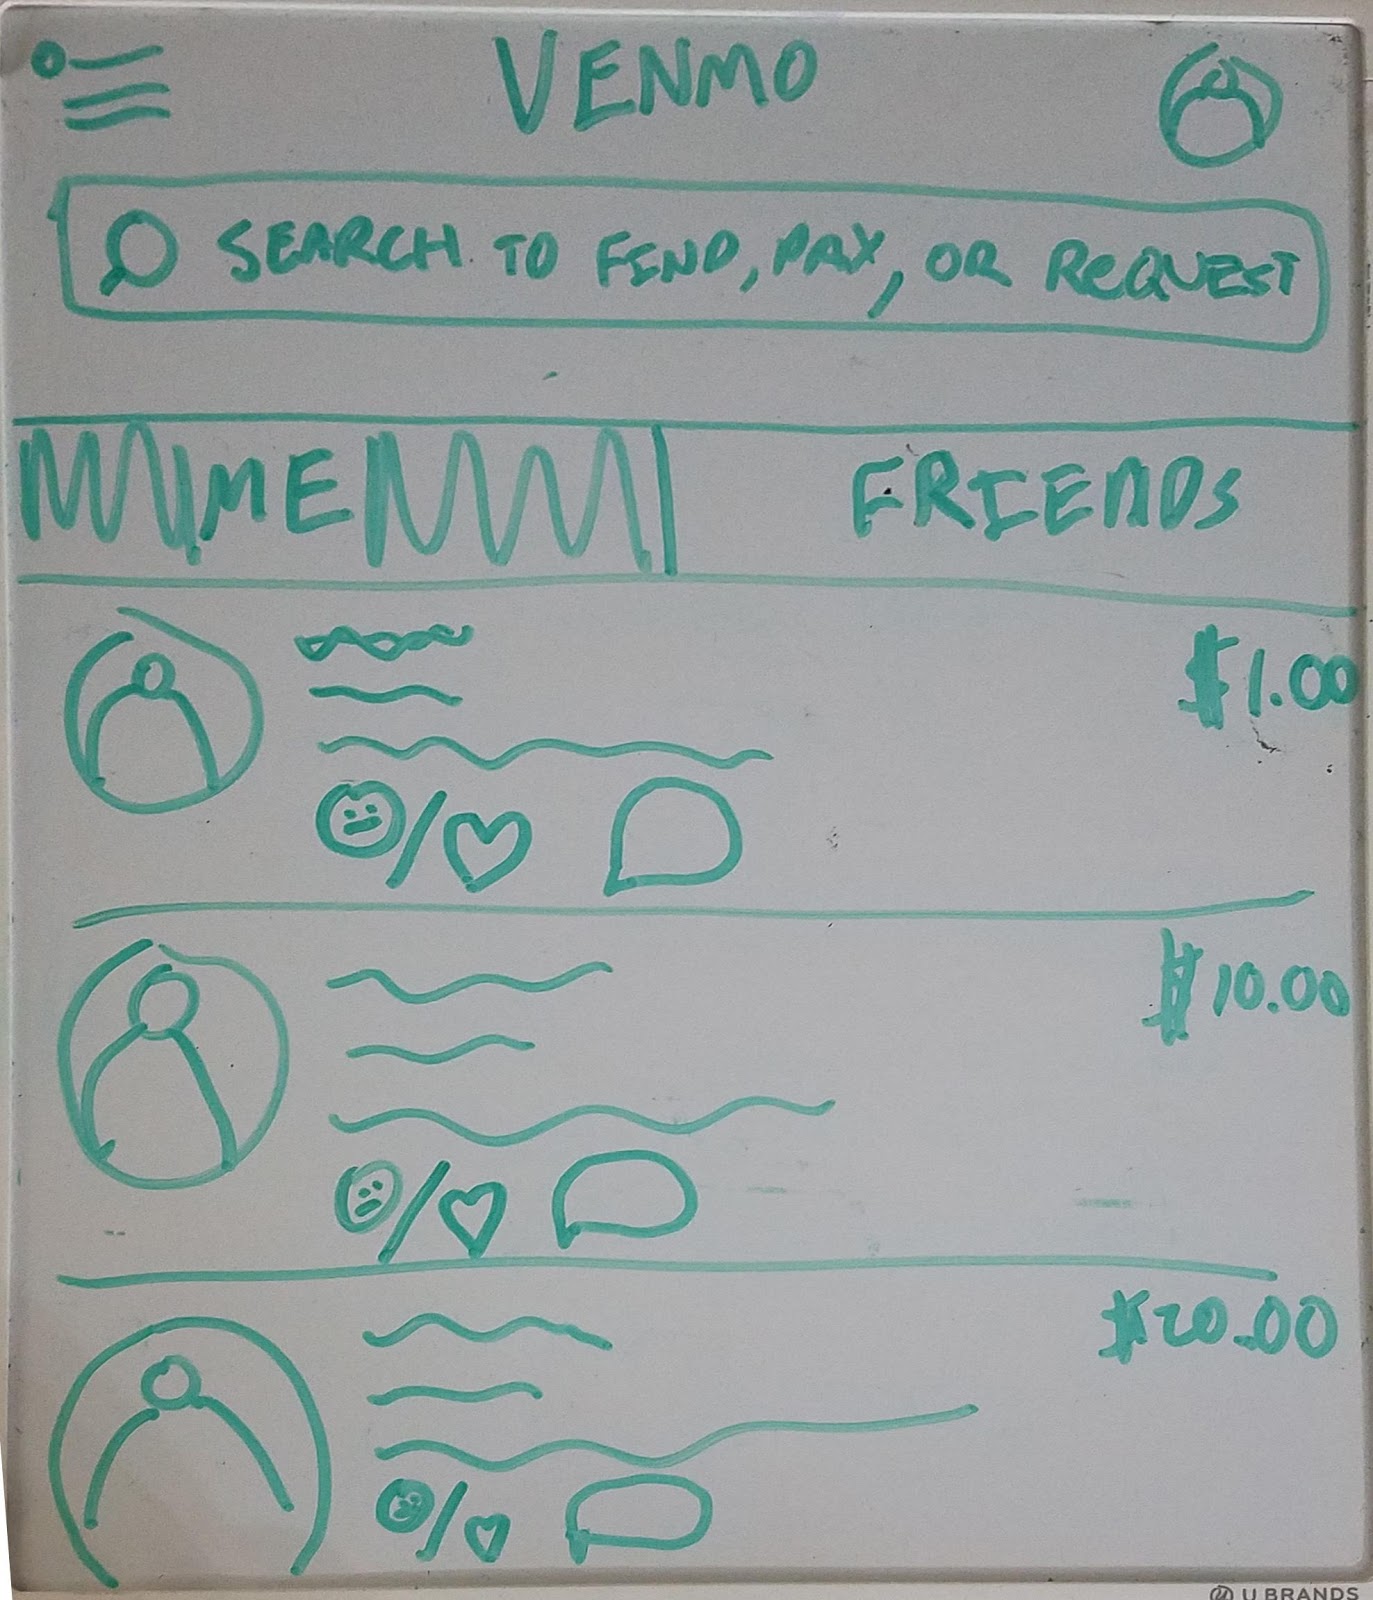 VENMO
SEARCH TO FIND, PAY, OR REQUEST
ME FRIENDS
$1.00
$10.00
$20.00
U BRANDS